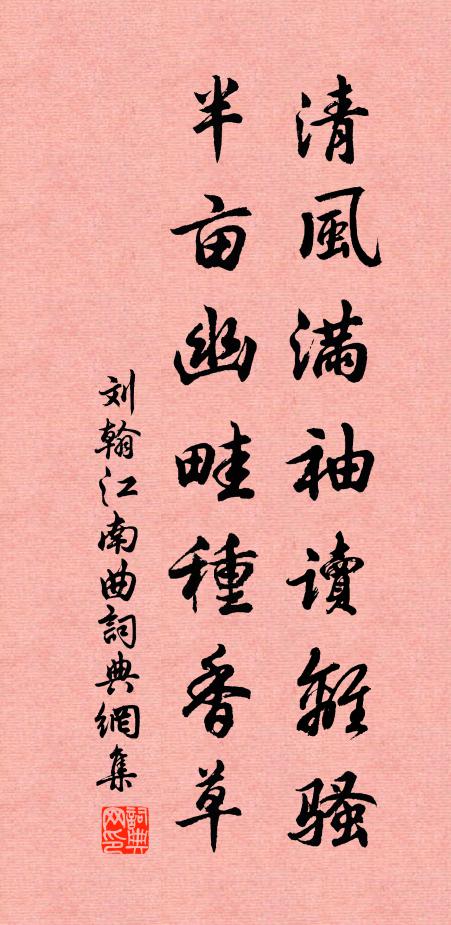 清風满袖读離骚
半亩幽畦種香草
刘翰江南曲詞典網集
詞典网印